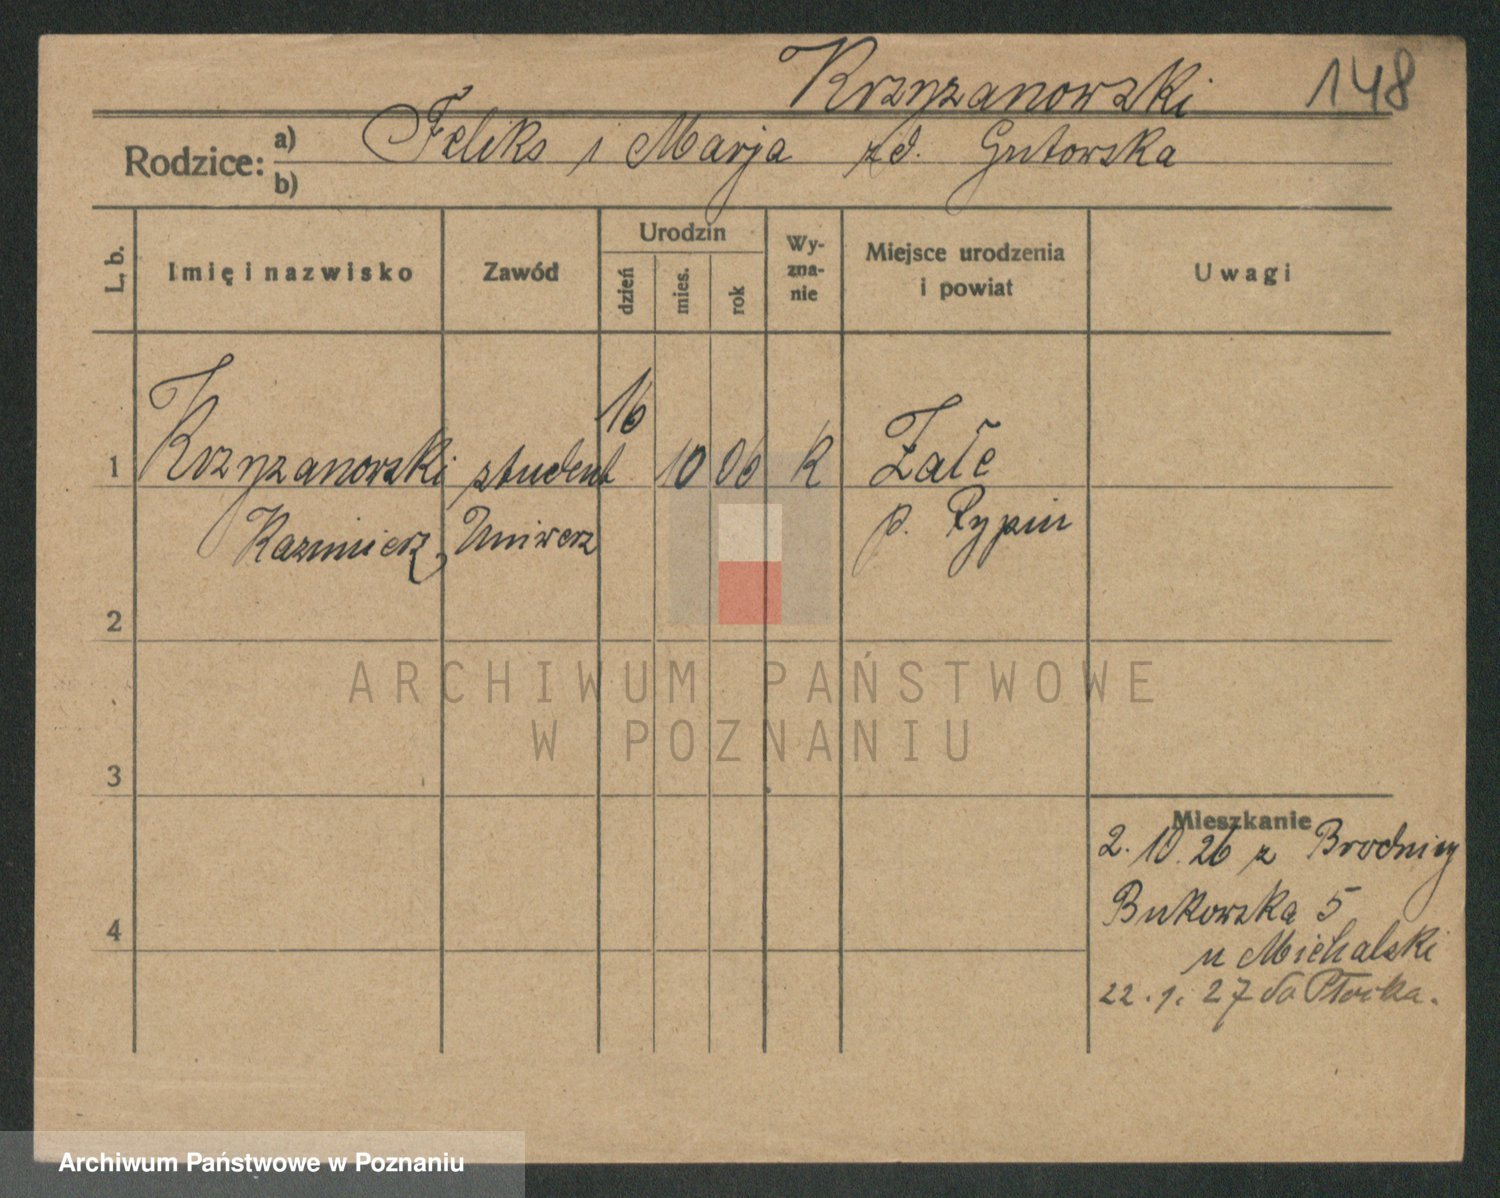 Krzyzanowski 148
Rodzice: a) Feliks i Marja zd. Gutorska
b)
L. b. Imię i nazwisko Zawód Urodzin dzień mies. rok Wy-zna-nie Miejsce urodzenia i powiat Uwagi
1 Krzyzanowski student 16 10 06 K Zale
Kazimierz Uniwerz p. Rypin
2
3
4
ARCHIWUM PAŃSTWOWE
W POZNANIU
Mieszkanie
2. 10. 26 z Brodnicy
Bukowska 5
u Michalski
22. 1. 27 do Płocka.
Archiwum Państwowe w Poznaniu